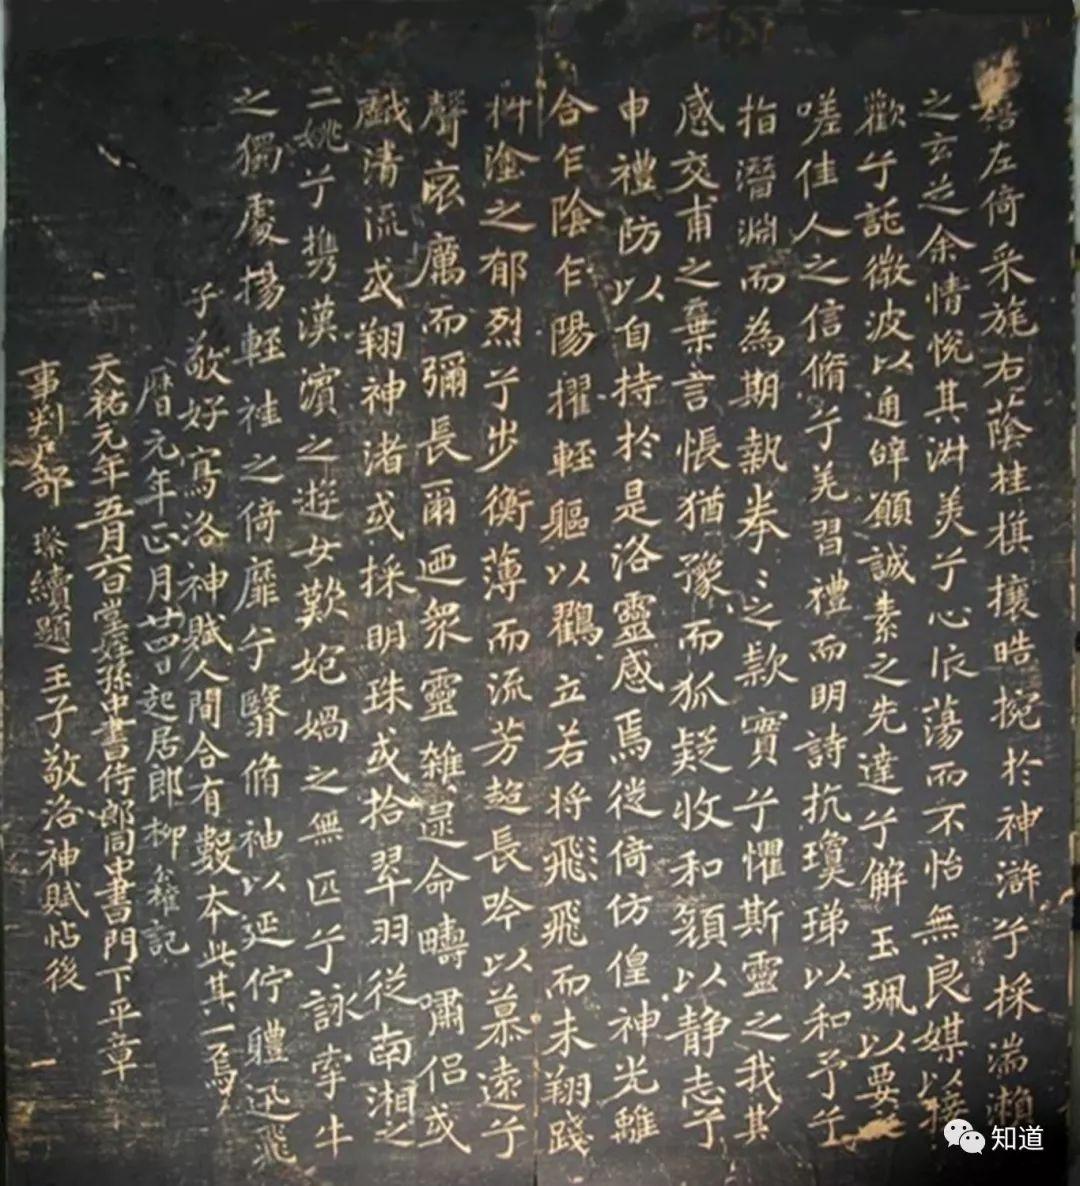 嬉左倚采旄右蔭桂旗攘皓捥於神滸兮採湍瀨
之玄芝余情悅其淑美兮心蕩而不怡無良媒以接
歡兮託微波以通辝願誠素之先達兮解玉珮以要之
嗟佳人之信脩兮羌習禮而明詩抗瓊珶以和予兮
指潛淵而為期執拳〻之款實兮懼斯靈之我其
感交甫之棄言悵猶豫而狐疑收和顏以靜志兮
申禮防以自持於是洛靈感焉徙倚仿偟神光離
合乍陰乍陽擢輕軀以鸖立若將飛飛而未翔踐
椒塗之郁烈兮步衡薄而流芳超長吟以慕遠兮
聲哀厲而彌長爾迺眾靈雜遝命疇嘯侶或
戲清流或翔神渚或採明珠或拾翠羽從南湘之
二姚兮攜漢濱之遊女歎妃媧之無匹兮詠牽牛
之獨處揚輕袿之倚靡兮翳脩袖以延佇軆迅飛
子敬好寫洛神賦人間合有數本此其一焉
曆元年正月廿四日起居郎柳公權記
天祐元年五月六日堂姪孫中書侍郎同中書門下平章
事判戶部 璨續題王子敬洛神賦帖後
知道